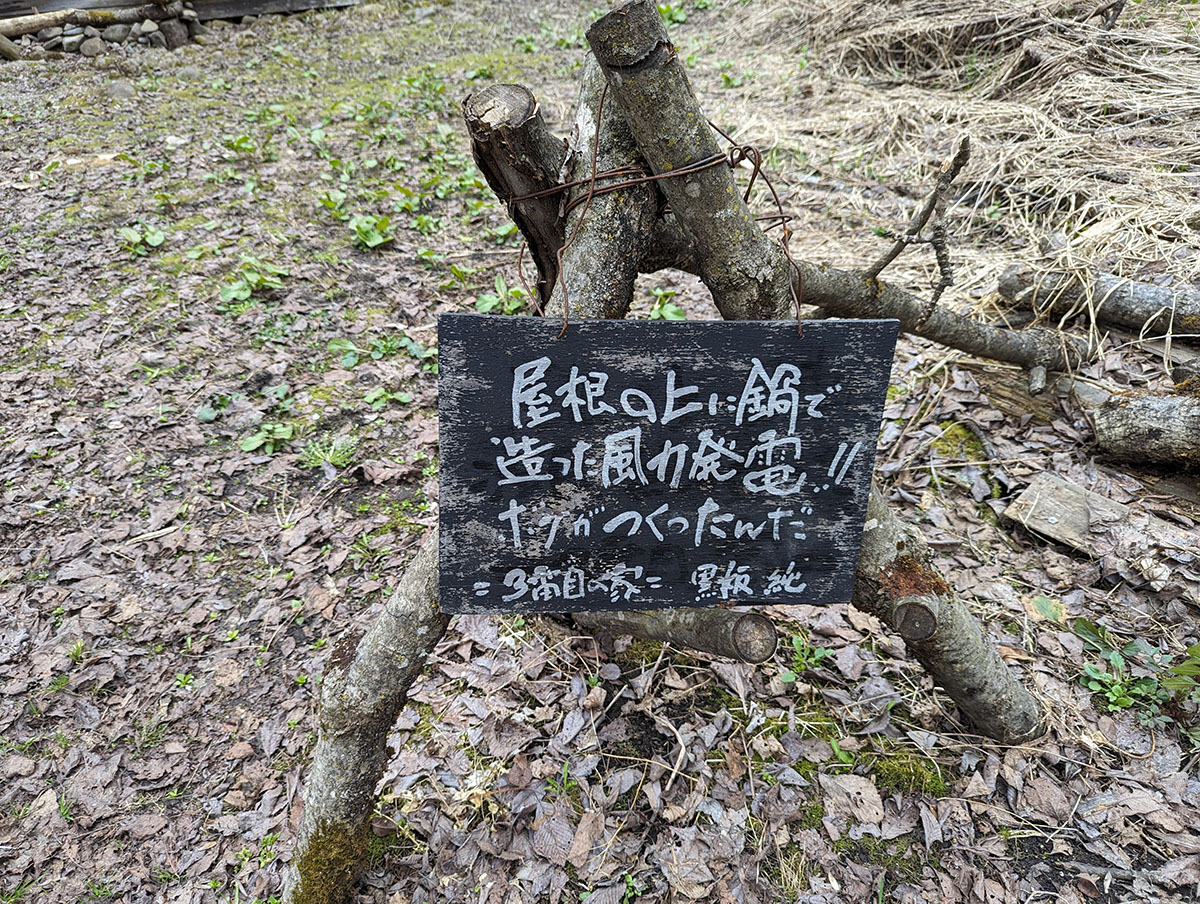 屋根の上に鍋で
造った風力発電!!
ボクがつくったんだ
=3番目の家= 黒板 純